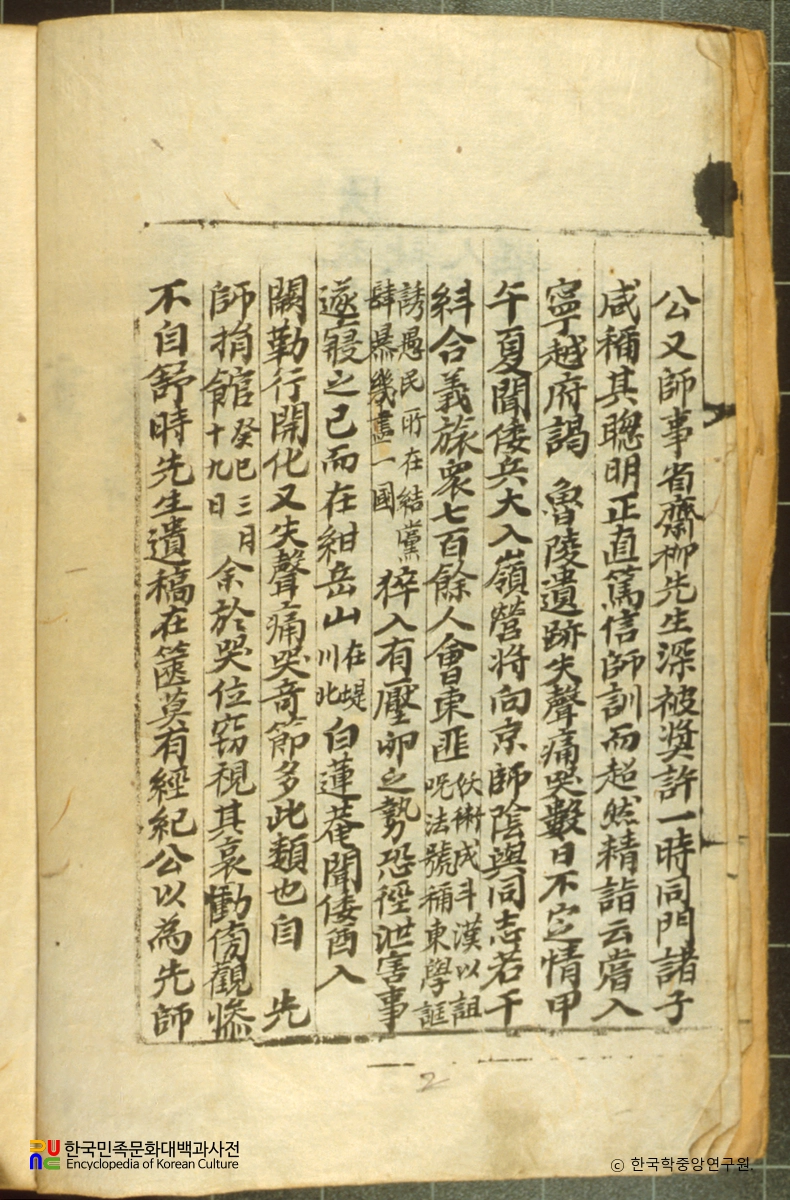 公又師事省齋柳先生深被奬許一時同門諸子
咸稱其聰明正直篤信師訓而超然精詣云嘗入
寧越府謁 魯陵遺跡失聲痛哭數日不定情甲
午夏聞倭兵大入嶺營將向京師陰與同志若干
糾合義旅衆七百餘人會東匪妖術成斗漢以詛
呪法號稱東學誆
誘愚民所在結黨
肆暴幾盡一國猝入有壓卵之勢恐徑泄害事
遂寢之已而在紺岳山在堤
川北白蓮菴聞倭酋入
闕勒行開化又失聲痛哭奇節多此類也自 先
師捐館癸巳三月
十九日余於哭位窃視其哀慟傍觀慘
不自舒時先生遺稿在篋莫有經紀公以為先師
2
한국민족문화대백과사전
Encyclopedia of Korean Culture
ⓒ 한국학중앙연구원